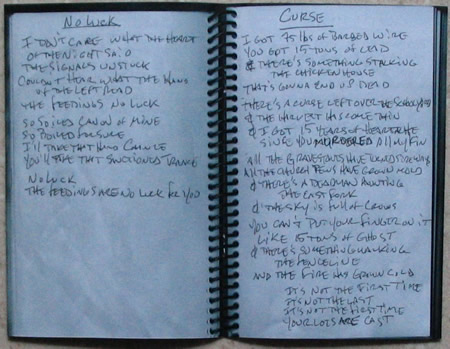 No Luck
I don't care what the heart
of the night said
The signals unstuck
Couldn't hear what the hand
of the left said
The feedings no luck
So spoiled of mine
So
I'll take that
You'll take that
No luck
The feedings are no luck for you
Curse
I got 75 lbs of barbed wire
You got 15 tons of lead
& there's something stalking
the chickenhouse
that's gonna end up dead
there's a curse left over the
& the harvest has come thin
& I got 15 years of
since you murdered all my kin
All the gravestones have turned
All the church pews have grown mold
& there's a dead man haunting
the east fork
& the sky is full of crows
You can't put your finger on it
like 15 tons of ghost
& there's something walking
the fenceline
and the fire has grown cold
It's not the first time
it's not the last
it's not the first time
your lots are cast